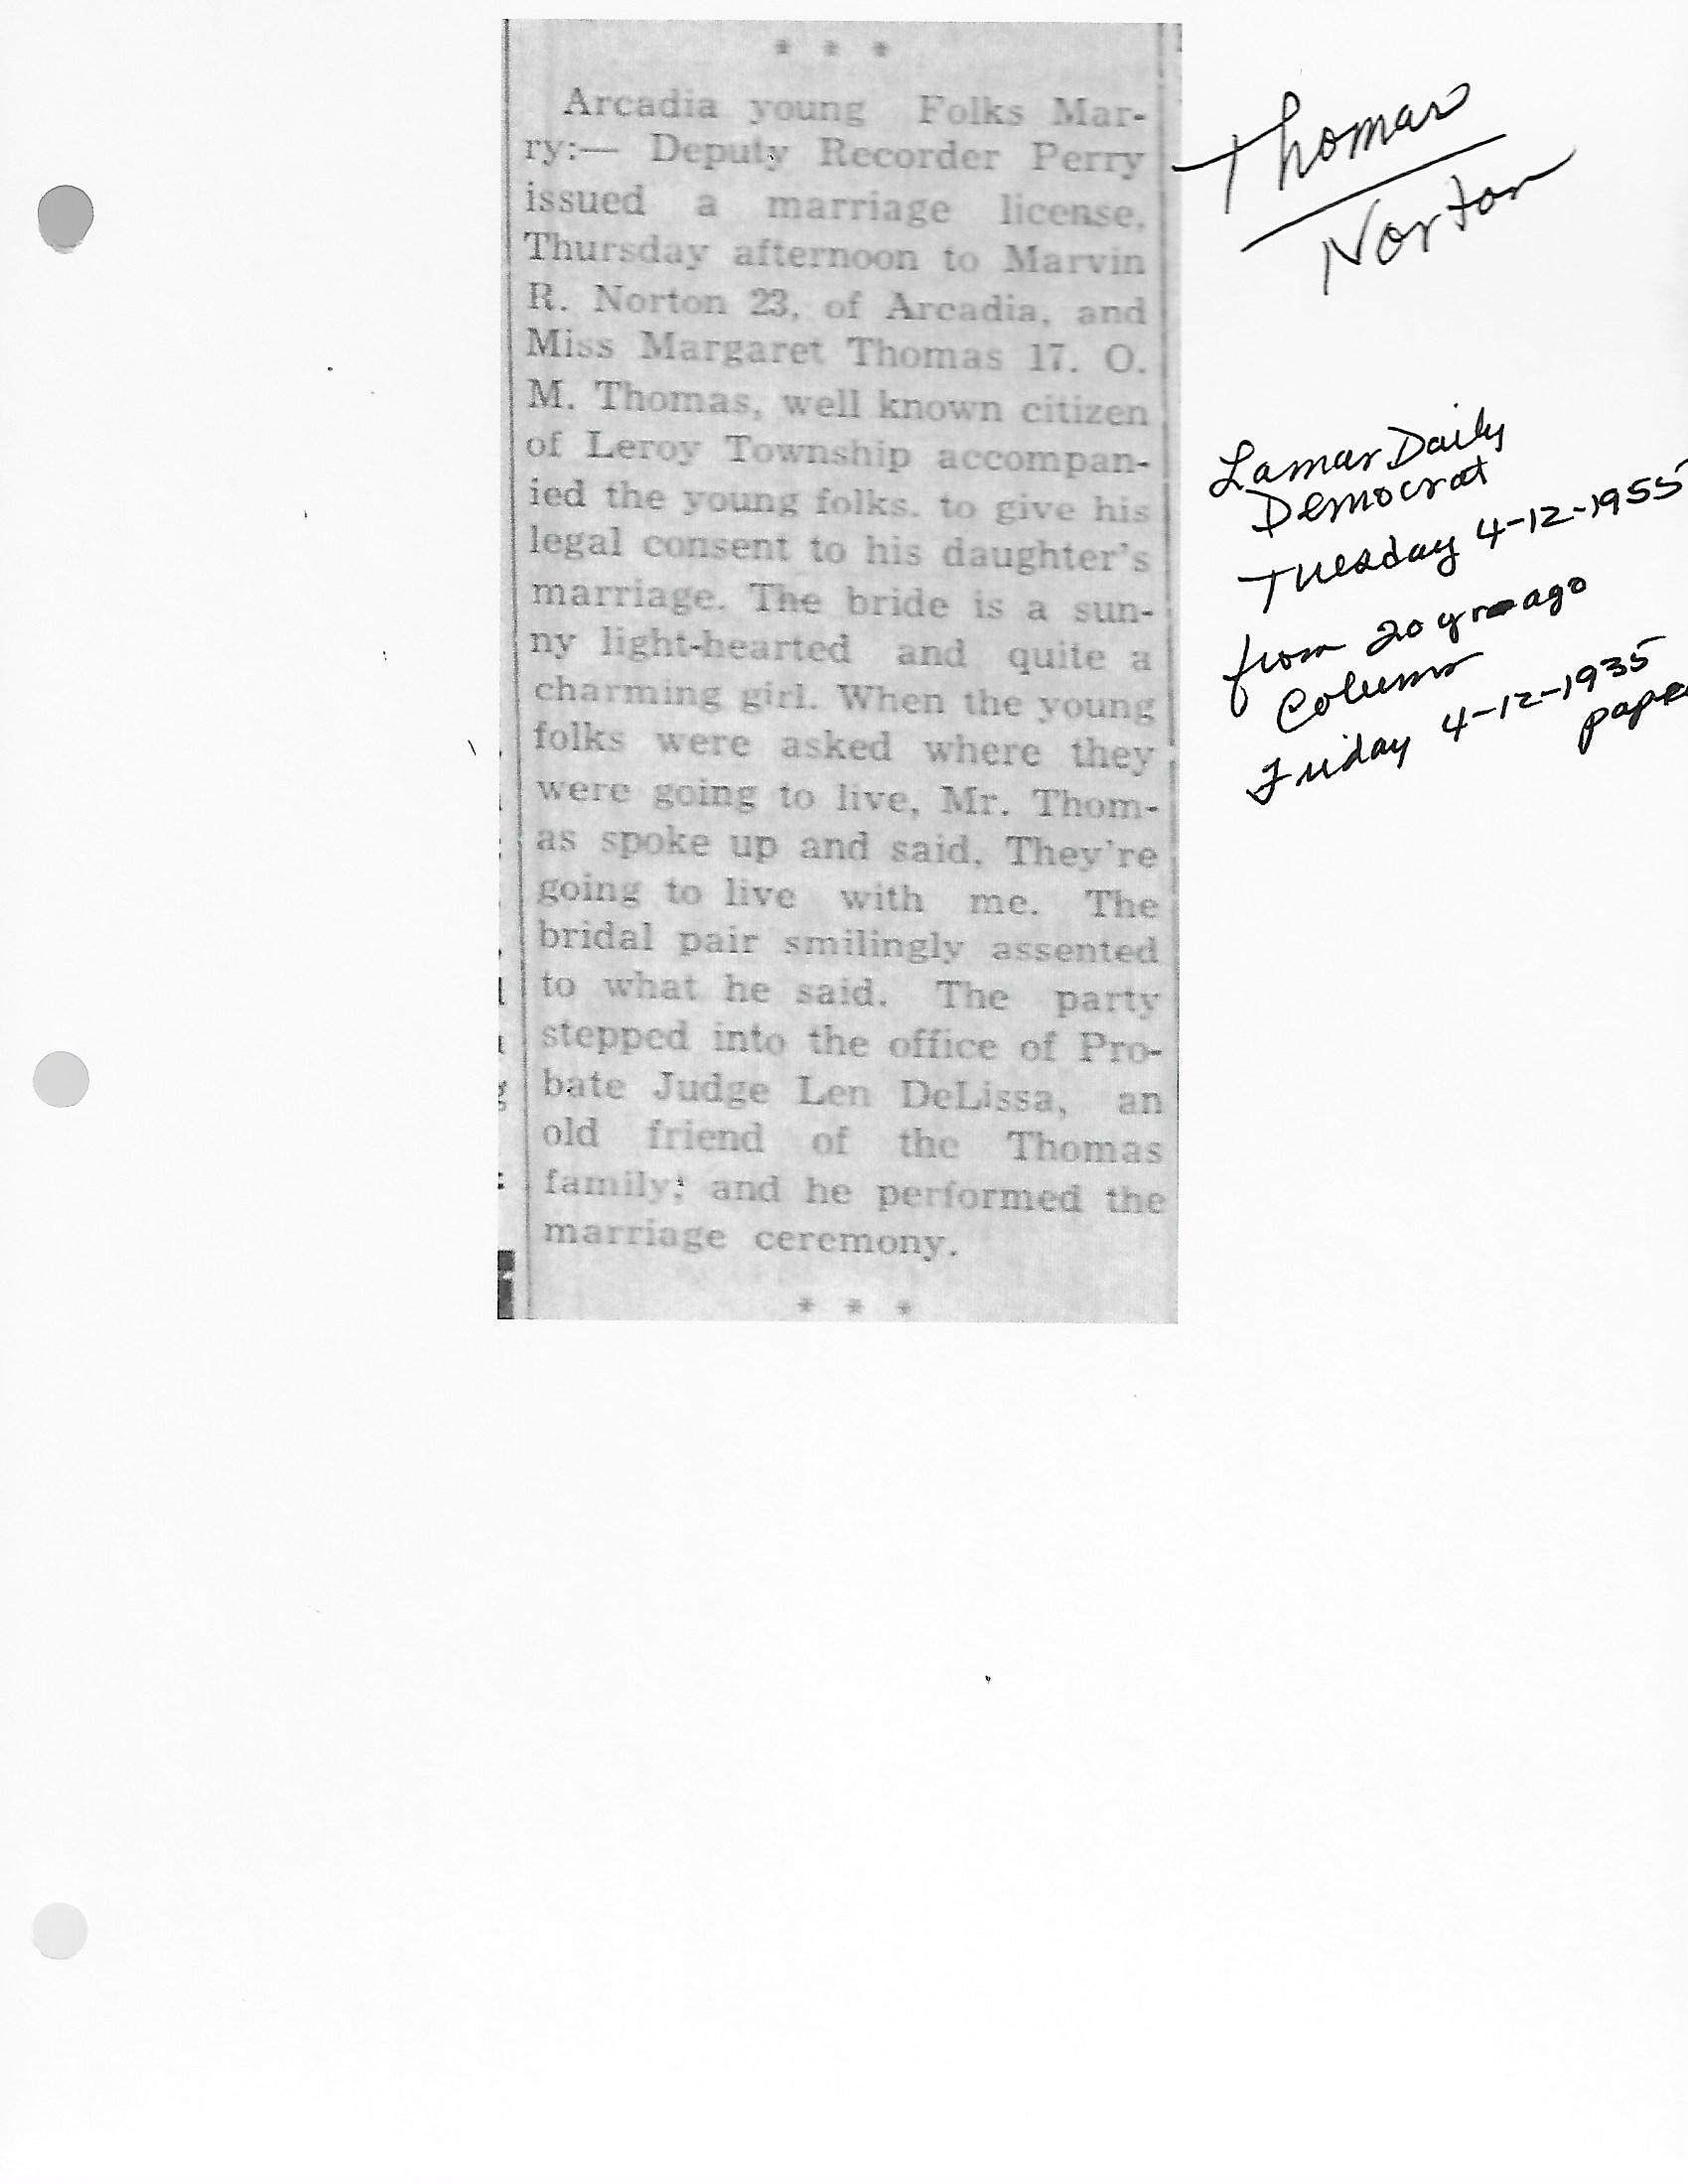 * * *
Arcadia young Folks Mar-
ry:— Deputy Recorder Perry
issued a marriage license,
Thursday afternoon to Marvin
R. Norton 23, of Arcadia, and
Miss Margaret Thomas 17. O.
M. Thomas, well known citizen
of Leroy Township accompan-
ied the young folks. to give his
legal consent to his daughter's
marriage. The bride is a sun-
ny light-hearted and quite a
charming girl. When the young
folks were asked where they
were going to live, Mr. Thom-
as spoke up and said, They're
going to live with me. The
bridal pair smilingly assented
to what he said. The party
stepped into the office of Pro-
bate Judge Len DeLissa, an
old friend of the Thomas
family; and he performed the
marriage ceremony.
* * *
Thomas
Norton
Lamar Daily
Democrat
Tuesday 4-12-1955
from 20 yr ago
Column
Friday 4-12-1935
pape